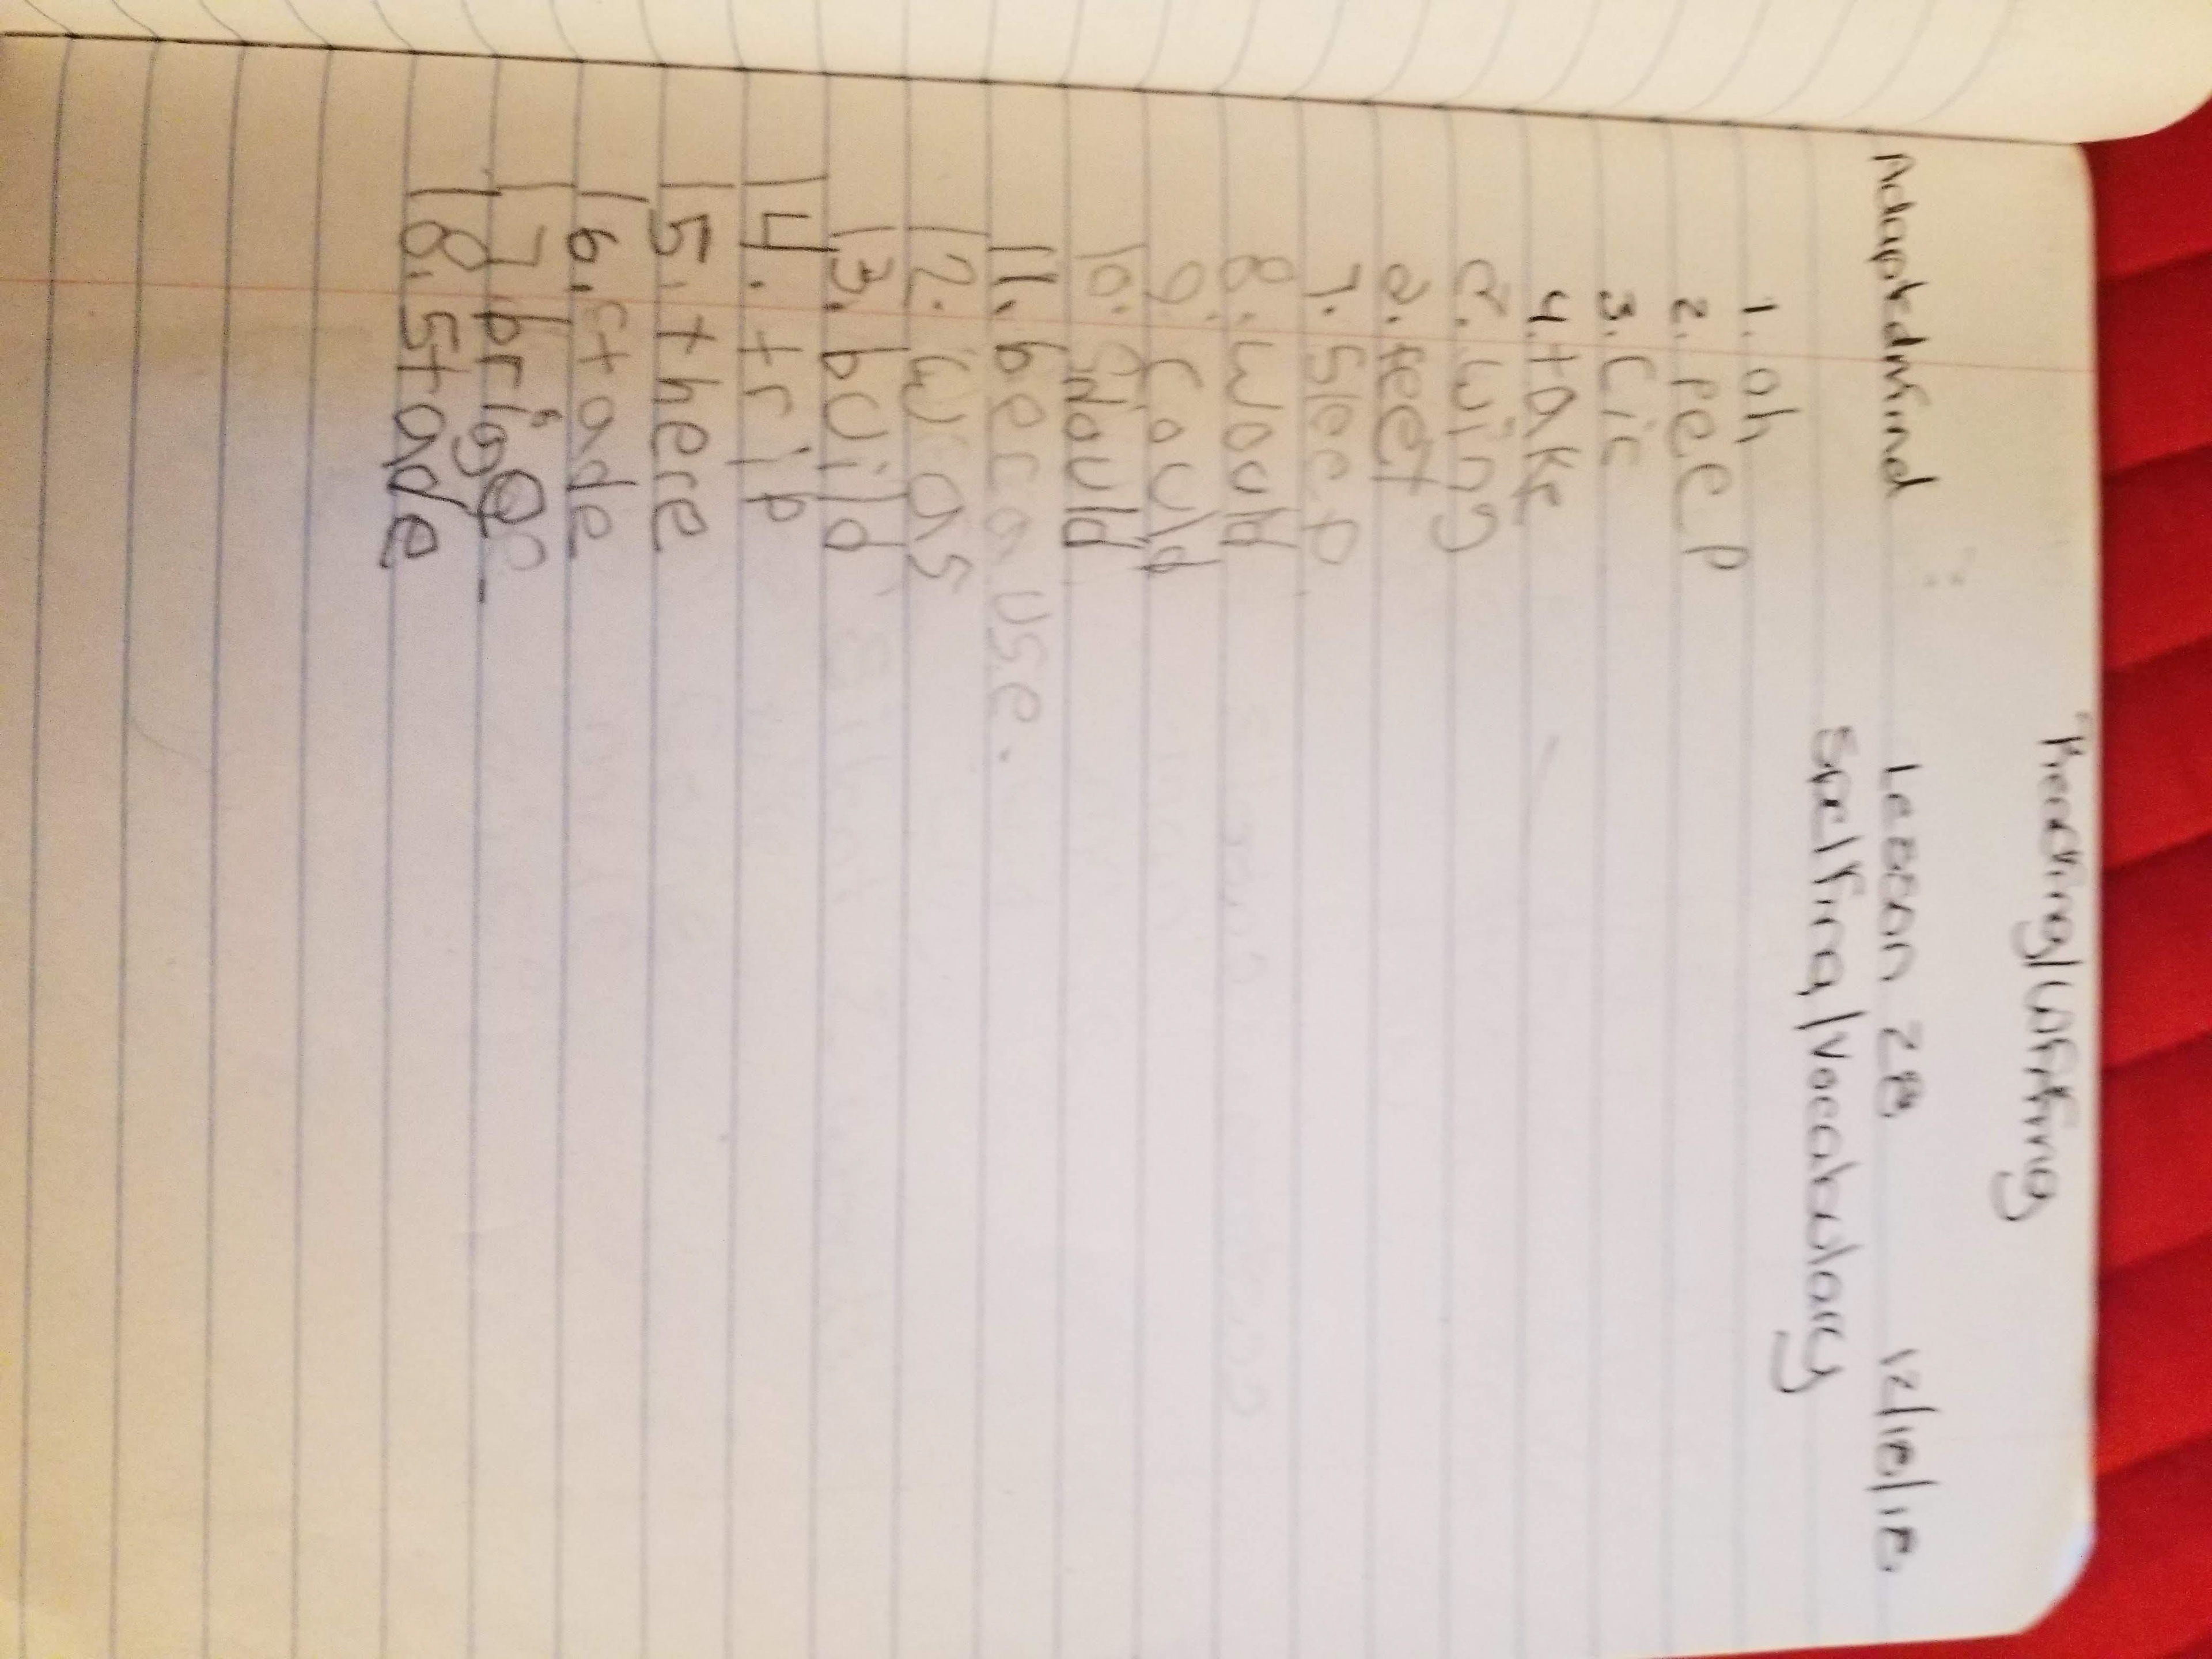 Reading/Writing
Adaptedmind Lesson 28 12/18/18
Spelling/Vocabulary
1. oh
2. peep
3. Cic
4. take
5. wing
6. feet
7. Sleep
8. would
9. Could
10. Should
11. because.
12. was
13. build
14. trip
15. there
16. stade
17 brige
18. stade